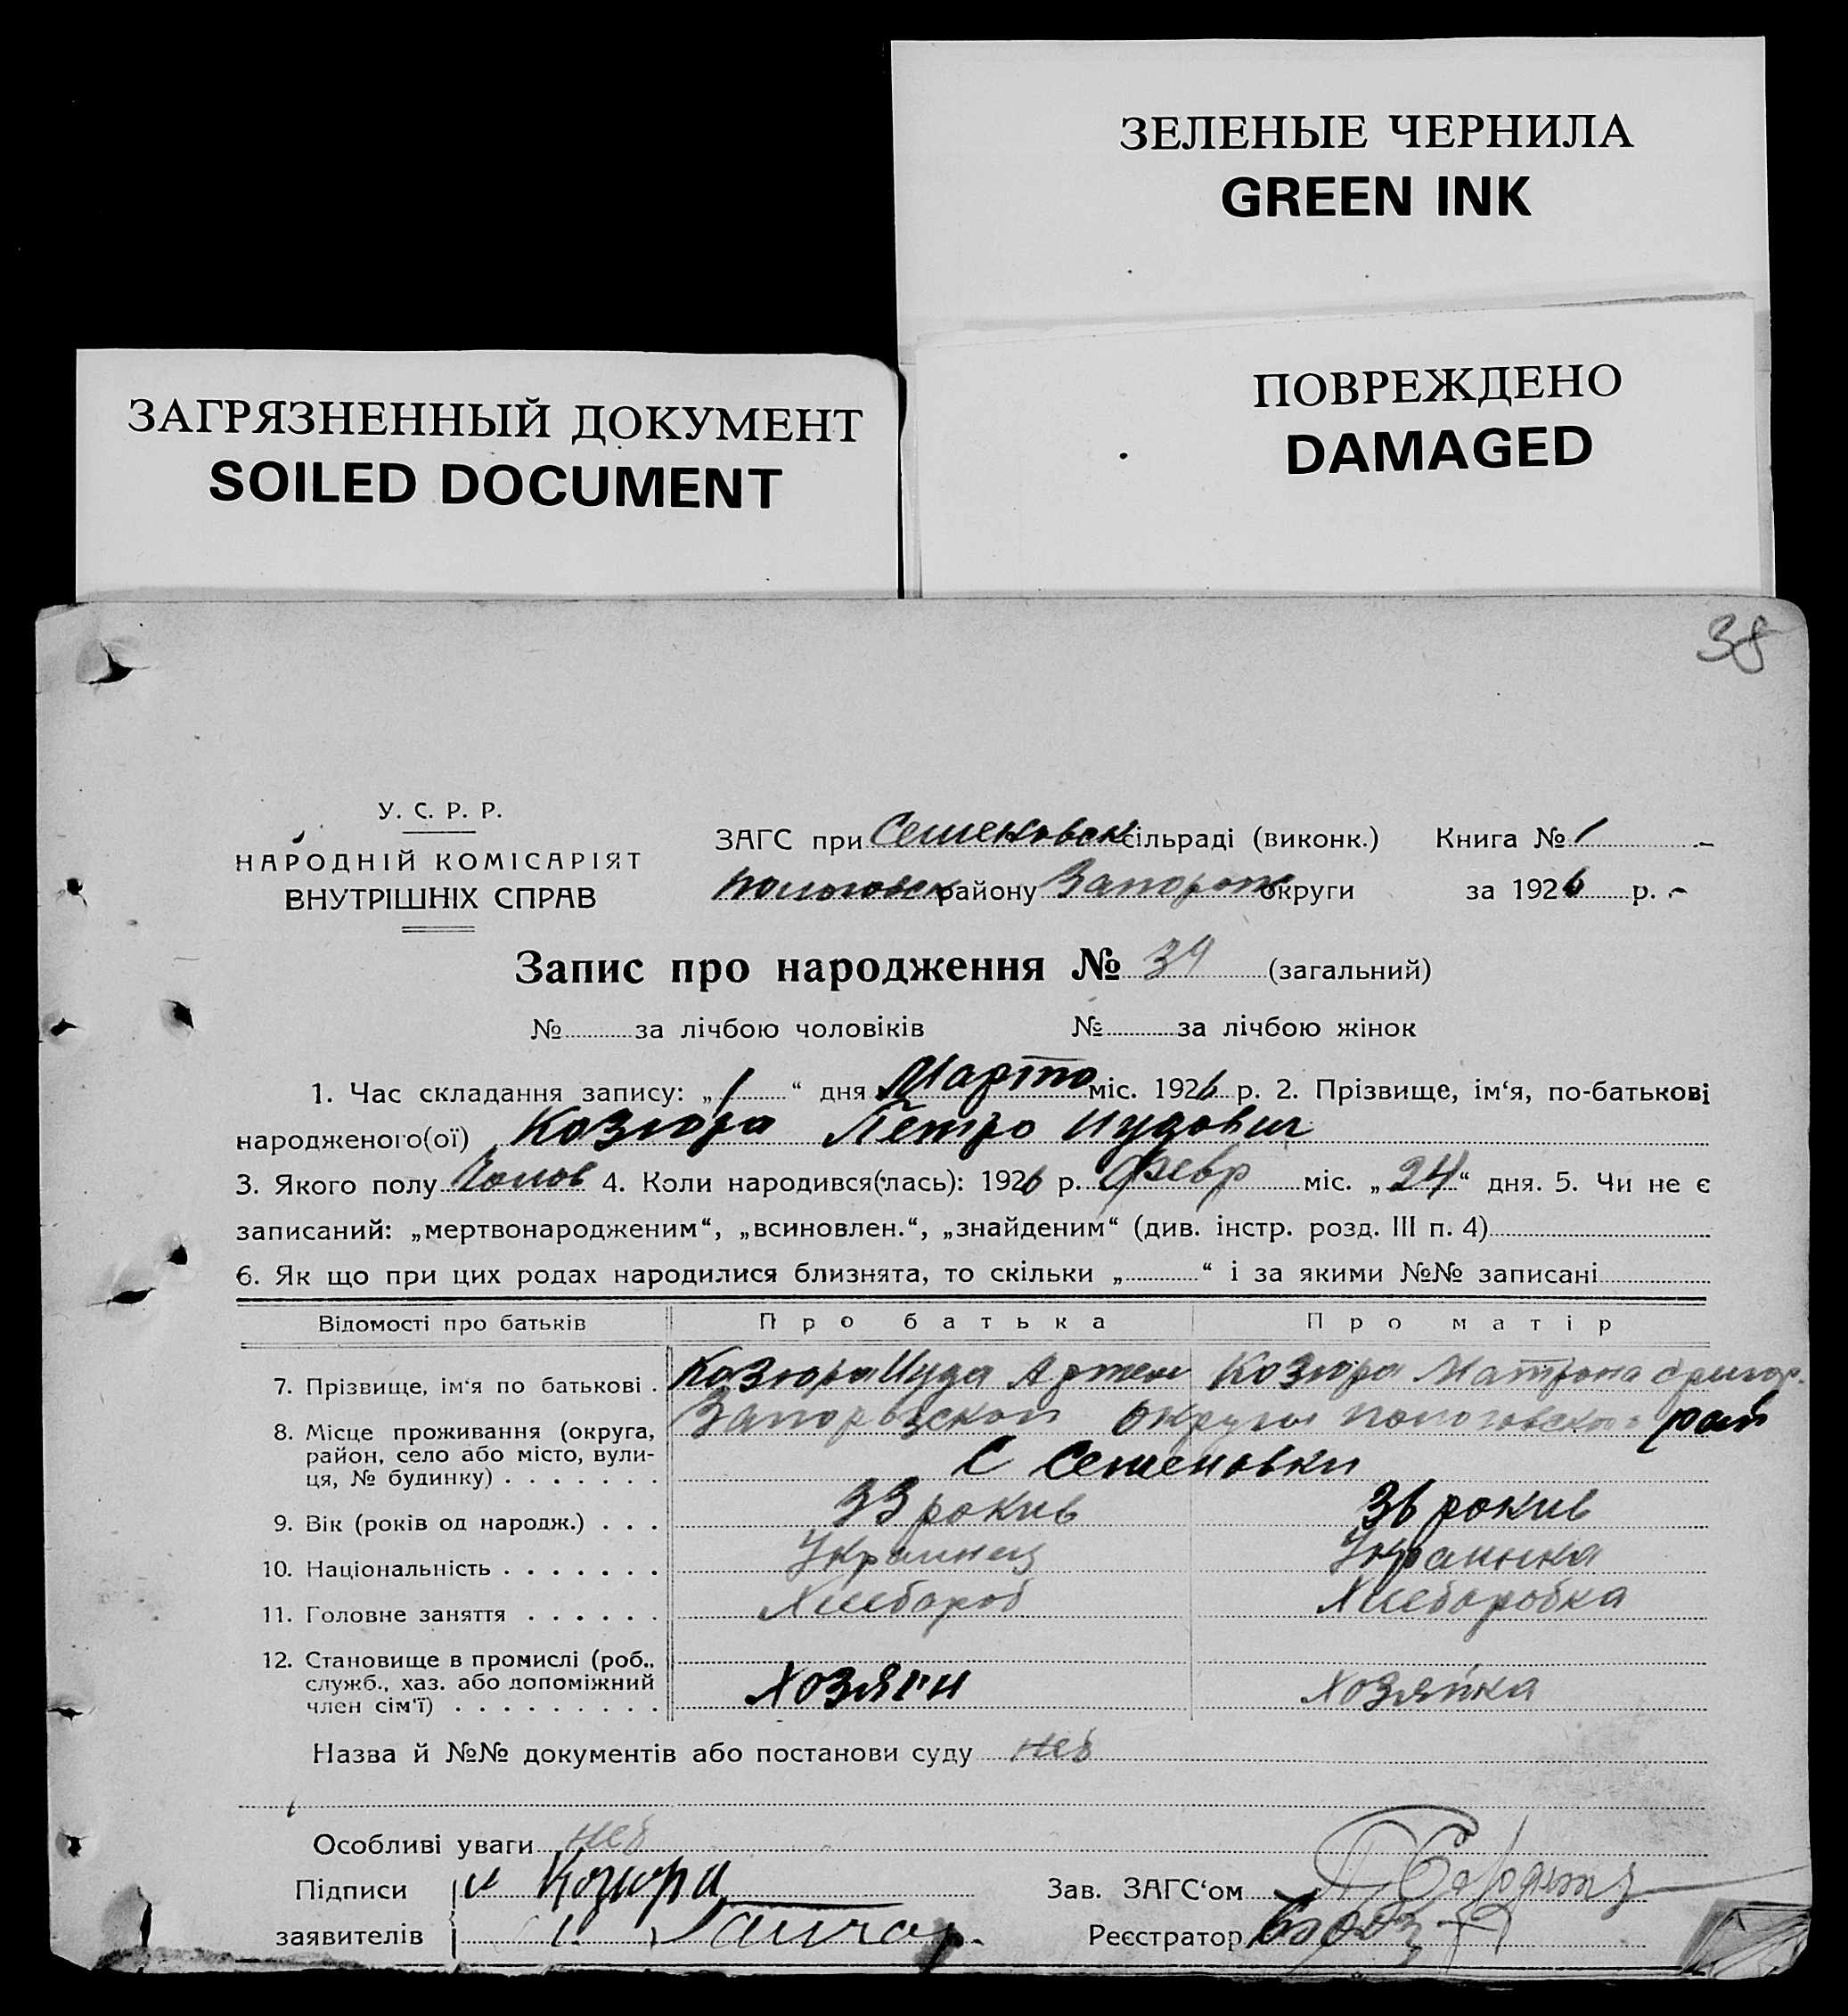 ЗЕЛЕНЫЕ ЧЕРНИЛА
GREEN INK
ПОВРЕЖДЕНО
DAMAGED
ЗАГРЯЗНЕННЫЙ ДОКУМЕНТ
SOILED DOCUMENT
38
У. С. Р. Р.
НАРОДНІЙ КОМІСАРІЯТ
ВНУТРІШНІХ СПРАВ
ЗАГС при Семеновск сільраді (виконк.) Книга № 1
Пологовск району Запорож округи за 1926 р.
Запис про народження № 34 (загальний)
№ за лічбою чоловіків № за лічбою жінок
1. Час складання запису: „1“ дня Марта міс. 1926 р. 2. Прізвище, ім‘я, по-батькові
народженого(ої) Козюра Петро Иудович
3. Якого полу Чолов 4. Коли народився(лась): 1926 р. Февр міс. „24“ дня. 5. Чи не є
записаний: „мертвонародженим“, „всиновлен.“, „знайденим“ (див. інстр. розд. III п. 4)
6. Як що при цих родах народилися близнята, то скільки „ “ і за якими №№ записані
Відомості про батьків Про батька Про матір
7. Прізвище, ім‘я по батькові . Козюра Иуда Артем Козюра Матрона Григор.
8. Місце проживання (округа, район, село або місто, вулиця, № будинку) . . . . . . . Запорізской округи Пологовского рай
С Семеновки
9. Вік (років од народж.) . . . 33 рокив 36 рокив
10. Національність . . . . . . . Украинец Украинка
11. Головне заняття . . . . . . Хлебороб Хлеборобка
12. Становище в промислі (роб., служб., хаз. або допоміжний член сім‘ї) . . . . . . . . . Хозяин Хозяйка
Назва й №№ документів або постанови суду
Особливі уваги
Підписи Козюра Зав. ЗАГС‘ом
заявителів Реєстратор